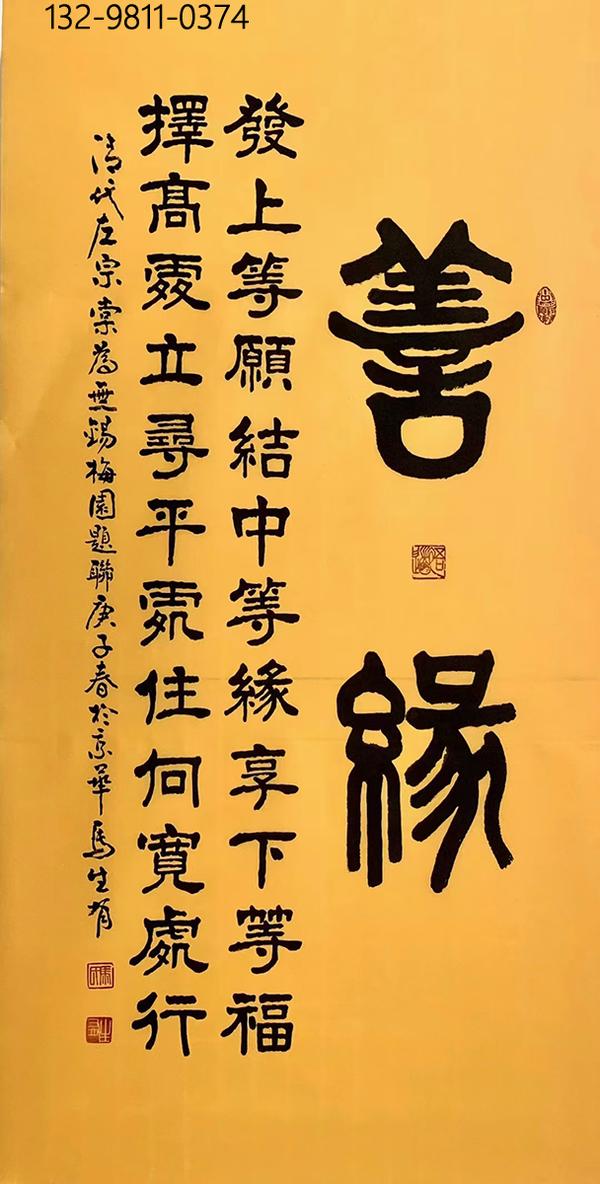 132-9811-0374
善緣
發上等願結中等緣享下等福
擇高處立尋平處住向寬處行
清代左宗棠為無錫梅園題聯庚子春於京華馬生有